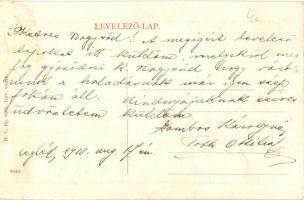 LEVELEZŐ-LAP.
Kedves Nagyvád! A megigért levelező
lapokat itt küldöm, melyekről meg
fog győződni k. Nagyvád, hogy városunk
a haladásnak már igen szép
fokán áll. Mindnyájuknak szíves
üdvözletem küldöm
Gombos Károlyné
Tóth Otilia
Czegléd, 1910. aug. 17 én.